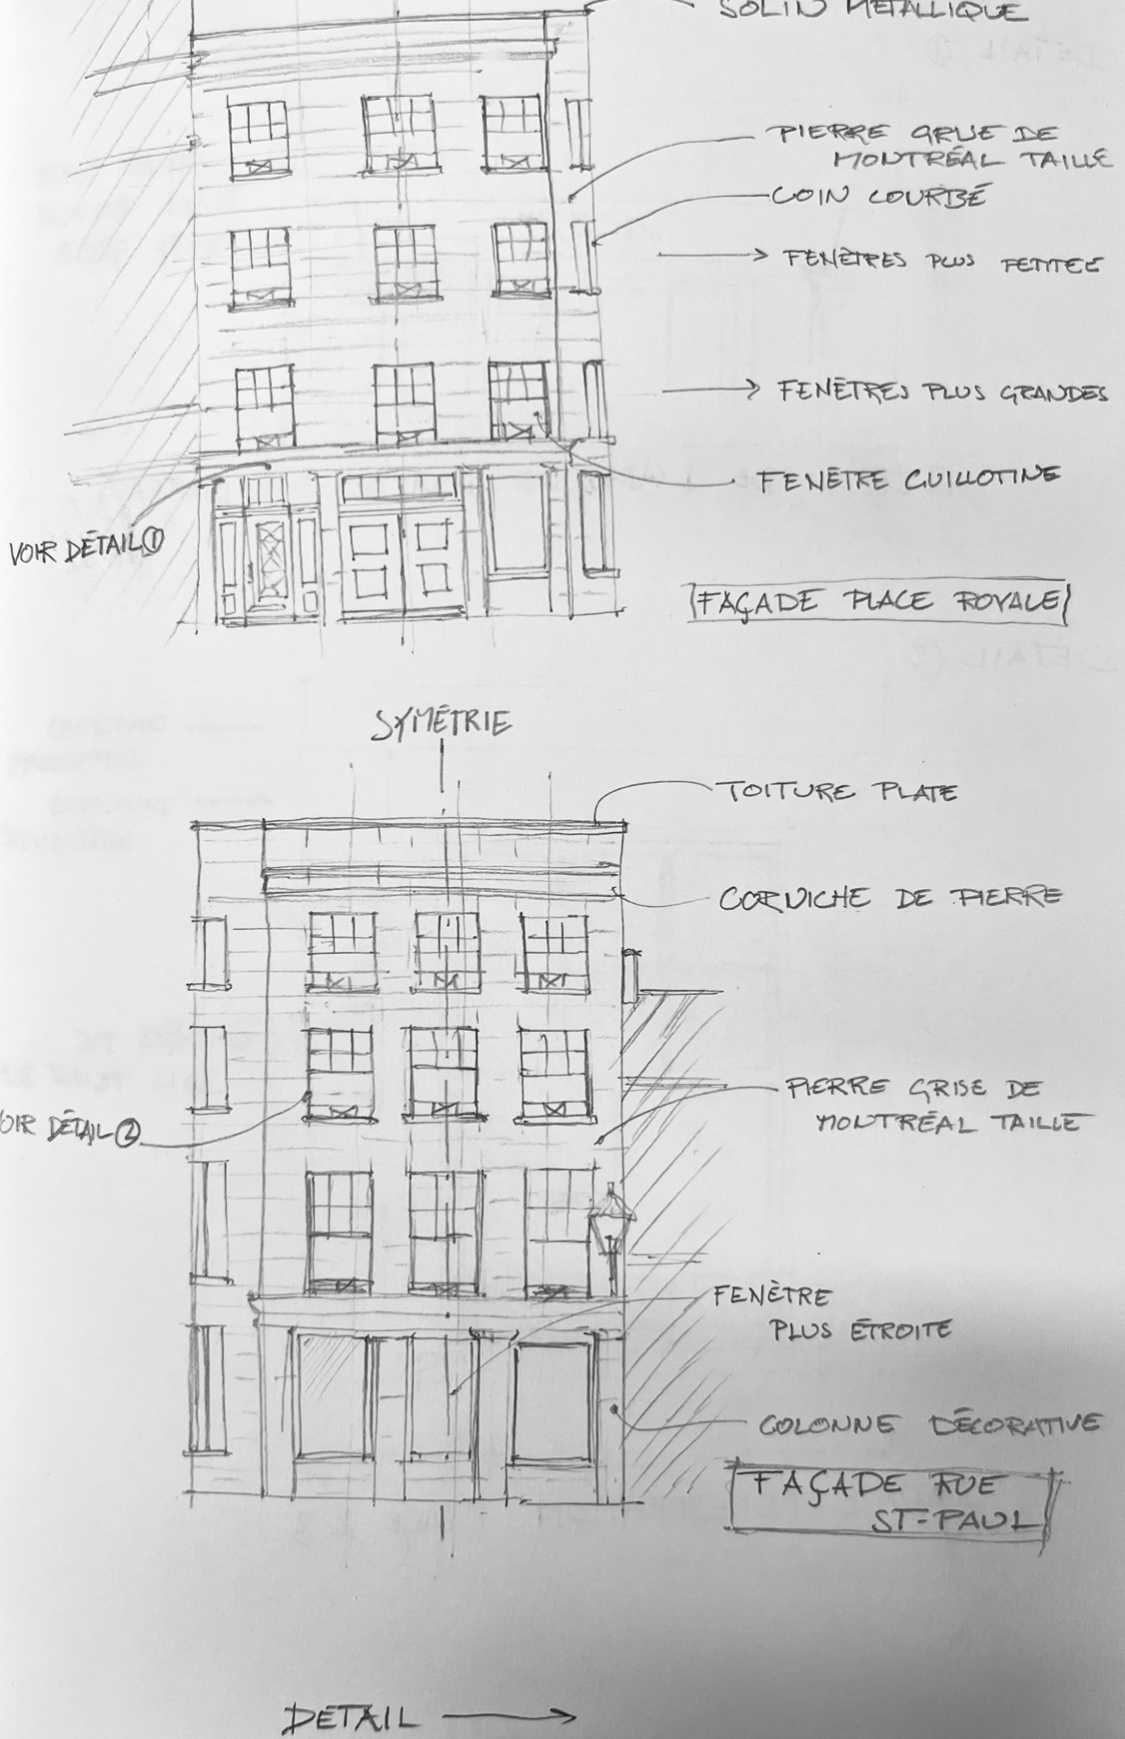 SOLIN MÉTALLIQUE
PIERRE GRISE DE
MONTRÉAL TAILLÉ
COIN COURBÉ
FENÊTRES PLUS PETITES
FENÊTRES PLUS GRANDES
FENÊTRE GUILLOTINE
VOIR DÉTAIL ①
FAÇADE PLACE ROYALE
SYMÉTRIE
TOITURE PLATE
CORNICHE DE PIERRE
PIERRE GRISE DE
MONTRÉAL TAILLÉ
OIR DÉTAIL ②
FENÊTRE
PLUS ÉTROITE
COLONNE DÉCORATIVE
FAÇADE RUE
ST-PAUL
DÉTAIL